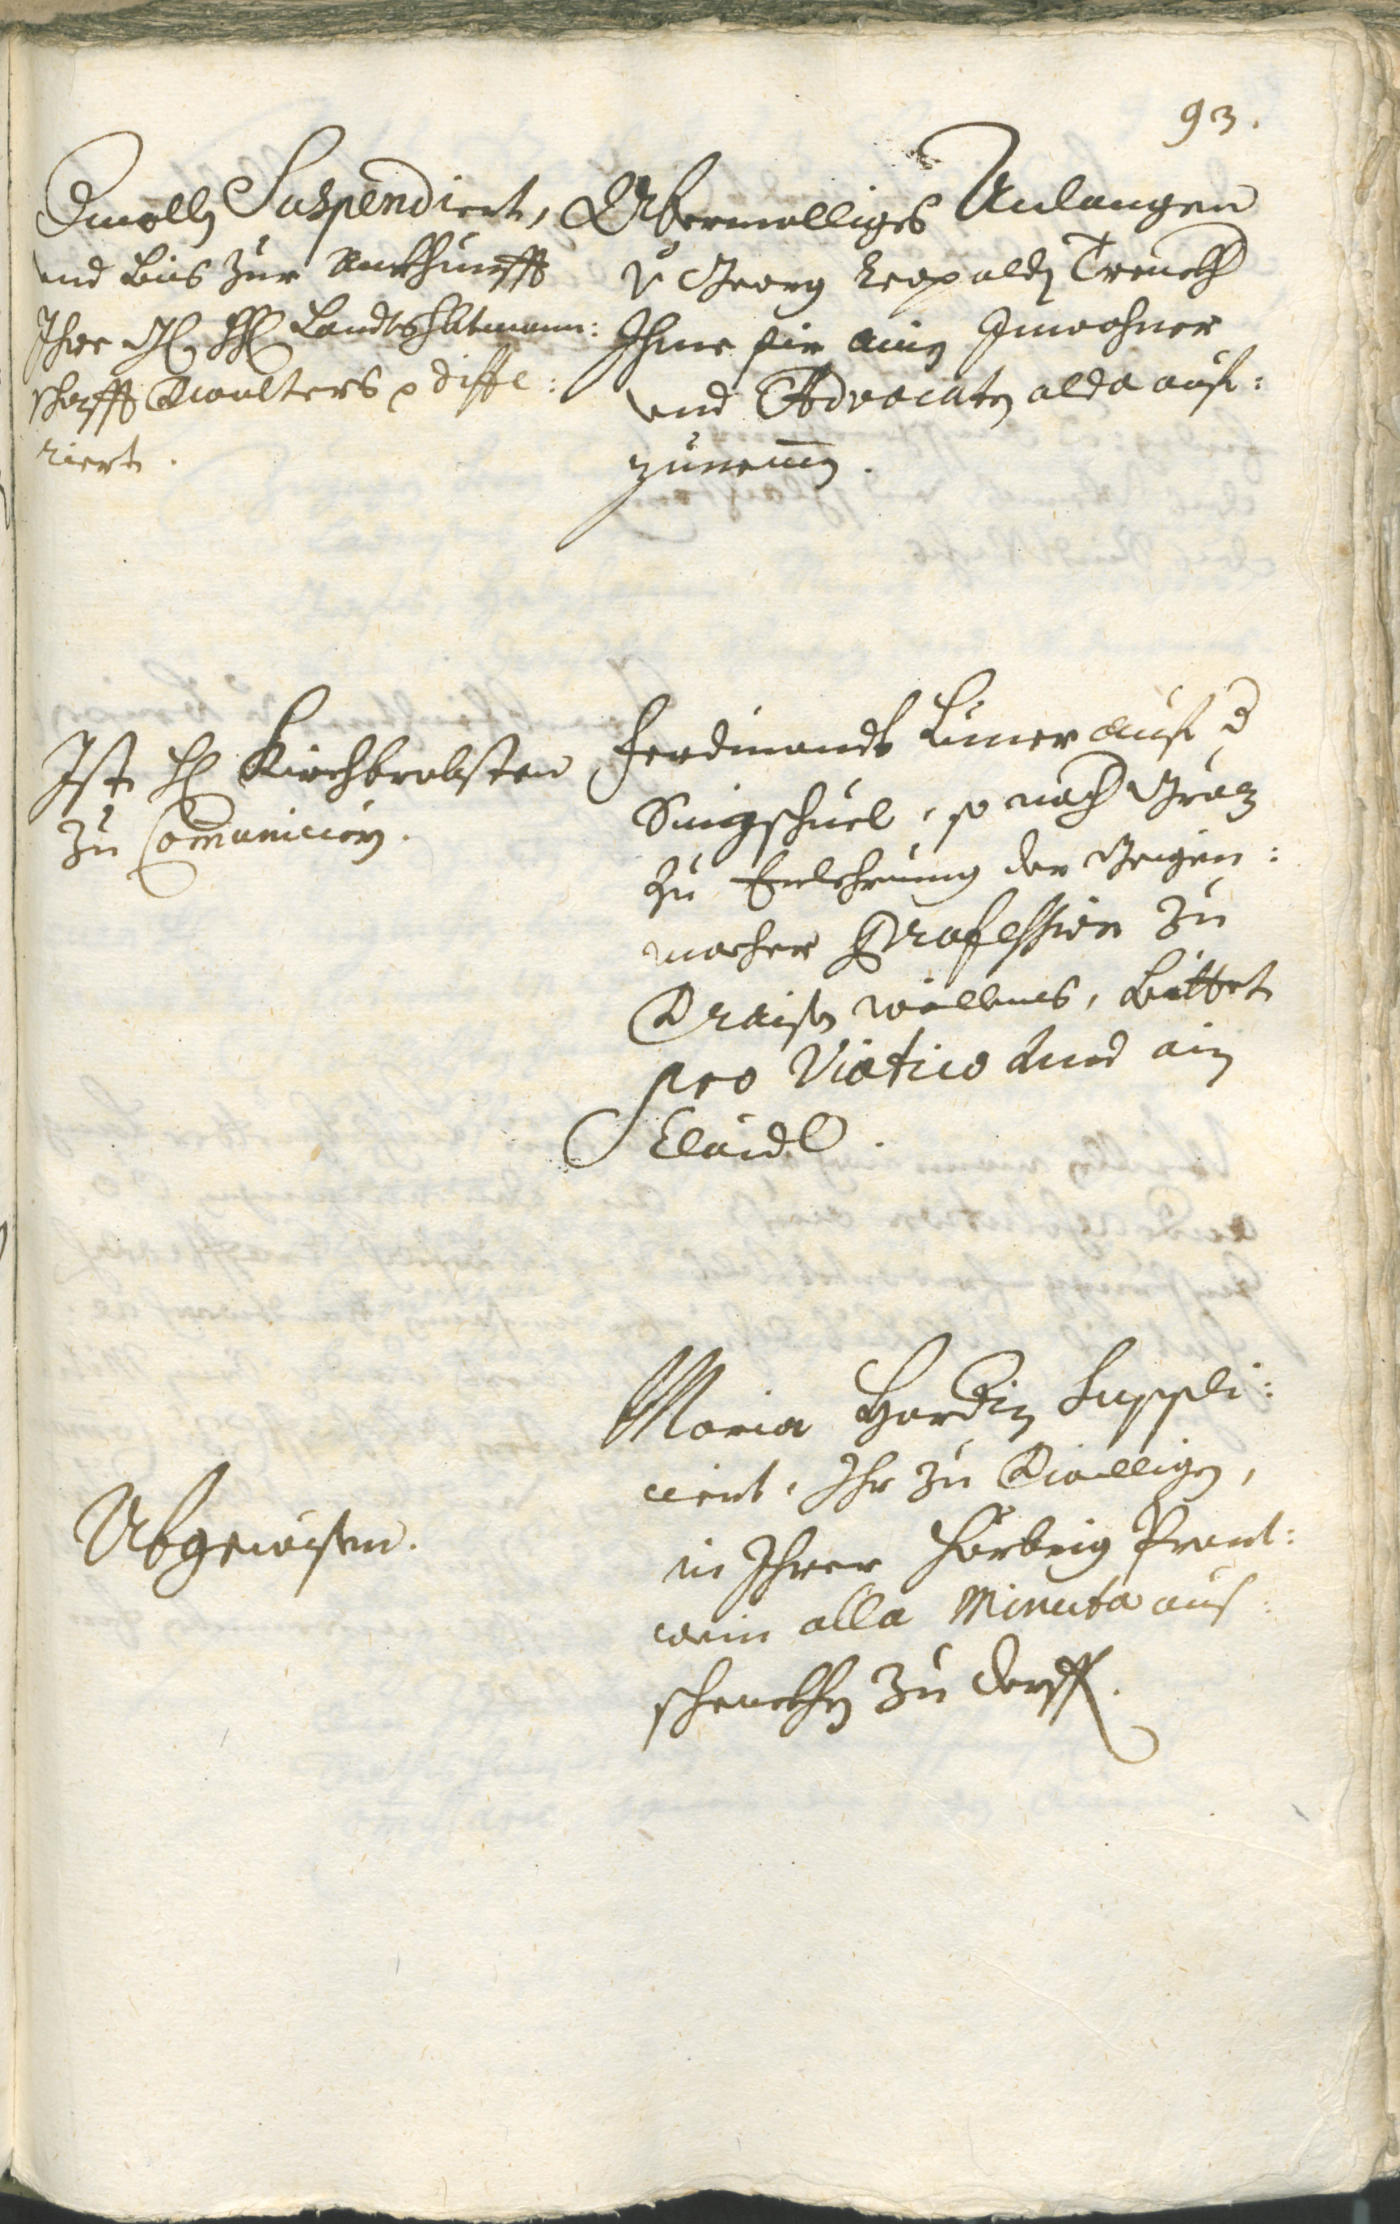 93.
Dmolln Suspendiert,
und bis zur Ankhunfft
Ihro
Landtshbtmann:
schafft Verwalters p diffe:
riert.
Abermalliges Anlangen
Georg Leopoldn Trenckh
Ihme für ainen Inwohner
und Advocaten alda auf:
zunemmen.
Ist H Kirchbrobsten
zu Communiciern.
Ferdinandt Limer auß d
Singschuel, so nach Gräz
zu Erlehrnung der Geigen:
macher Profession zu
Verraisen willens, bittet
pro Viatico und ain
Claidl.
Abgewisen.
Maria Hardin Suppli:
ciert, Ihr zu Bewilligen,
in Ihrer Hörberig Prant:
wein alla Minuta auß:
schenckhen zu derffen.